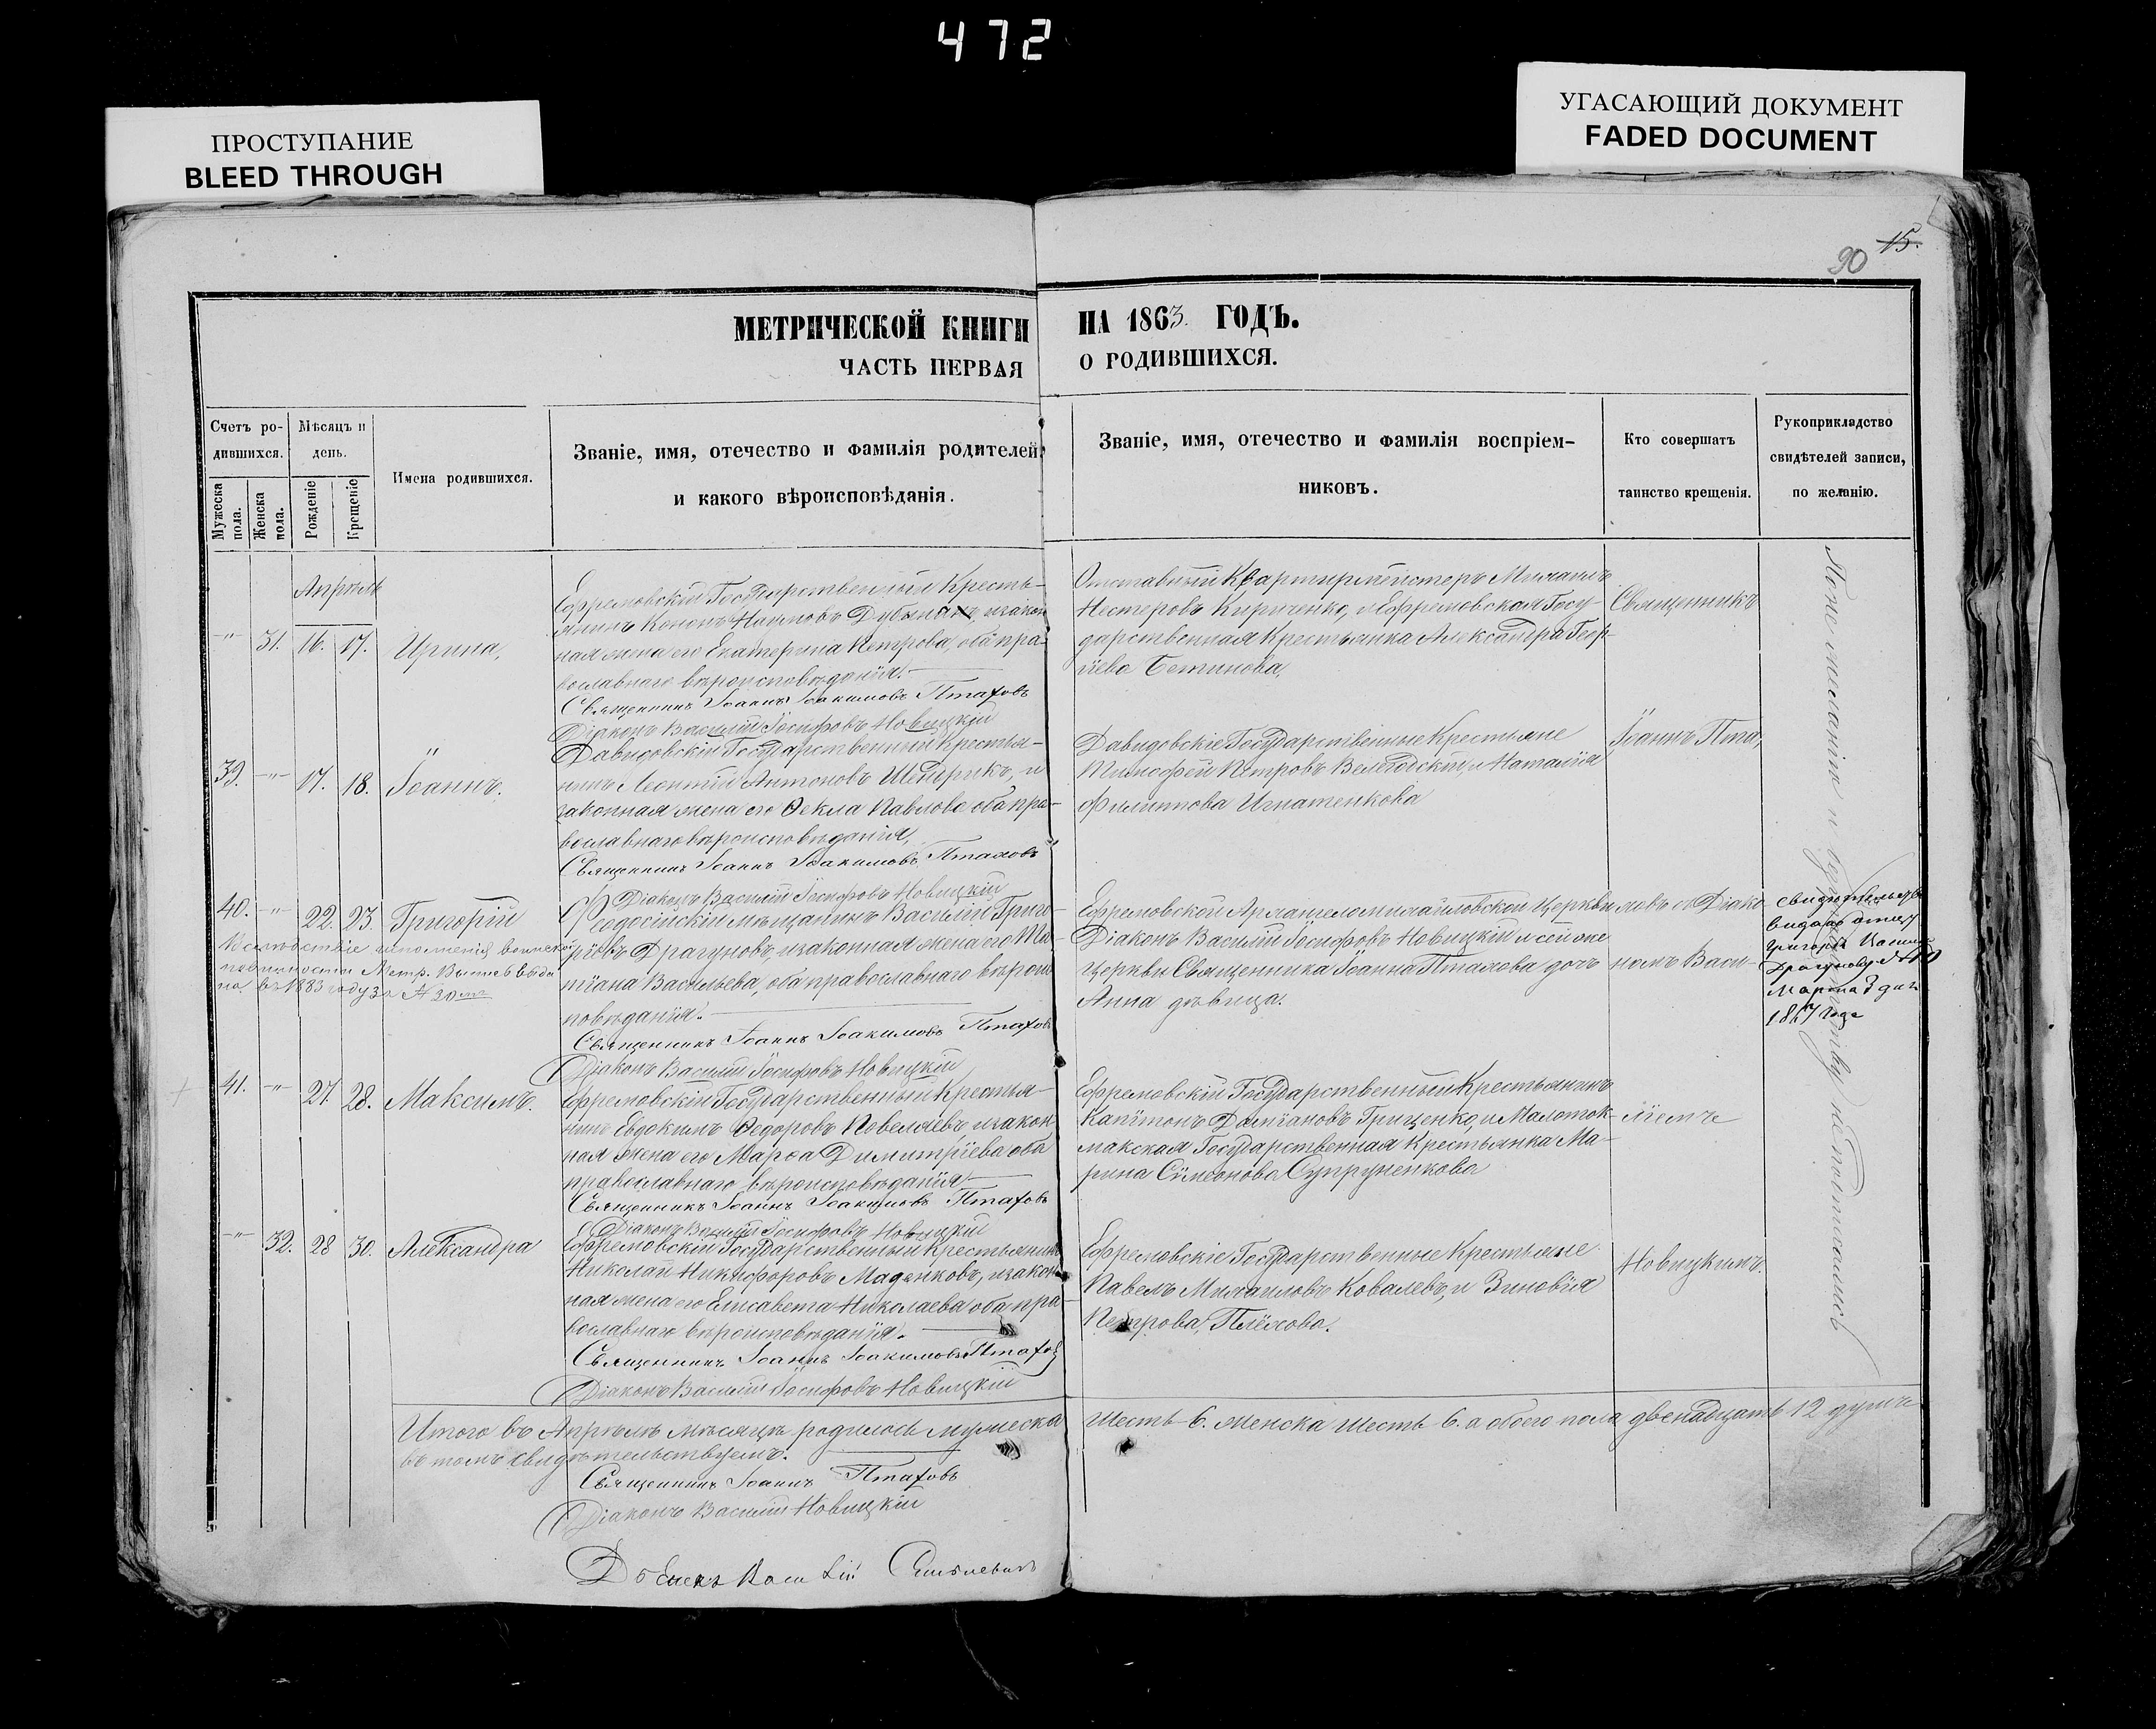 472
ПРОСТУПАНИЕ
BLEED THROUGH
УГАСАЮЩИЙ ДОКУМЕНТ
FADED DOCUMENT
90 15.
МЕТРИЧЕСКОЙ КНИГИ НА 1863. ГОДЪ.
ЧАСТЬ ПЕРВАЯ О РОДИВШИХСЯ.
Счетъ ро-
дившихся.
Мужеска
пола.
Женска
пола.
Мѣсяцъ и
день.
Рожденіе
Крещеніе
Имена родившихся.
Званіе, имя, отечество и фамилія родителей,
и какого вѣроисповѣданія.
Званіе, имя, отечество и фамилія воспріем-
никовъ.
Кто совершатъ
таинство крещенія.
Рукоприкладство
свидѣтелей записи,
по желанію.
Апрѣль
-"- 31. 16. 17. Ирина,
Ефремовскій Государственный Кресть-
янинъ Кононъ Наумовъ и закон
ная жена его Екатерина Петрова, оба пра-
вославнаго вѣроисповѣданія.
Священникъ Іоаннъ Іоакимовъ Птаховъ
Діаконъ Василій Іосифовъ Новицкій
Отставный Квартирмейстеръ Михаилъ
Нестеровъ Кириченко, и Ефремовская Госу-
дарственная Крестьянка Александра Геор-
гіева
Священникъ
39. -"- 17. 18. Іоаннъ.
Давидовскій Государственный Крестья-
нинъ Леонтій Антоновъ и
законная жена его Ѳекла Павлова оба пра-
вославнаго вѣроисповѣданія,
Священникъ Іоаннъ Іоакимовъ Птаховъ
Діаконъ Василій Іосифовъ Новицкій
Давидовскіе Государственные Крестьяне
Тимофей Петровъ и Наталія
Филиппова Игнатенкова
Іоаннъ Пта,
40. -"- 22. 23. Григорій
Вслѣдствіе исполненія воинской
повинности Метр. Выпись выда
на въ 1883 году за № 30мъ
Феодосійскій мѣщанинъ Василій Григо-
рієвъ Драгуновъ, и законная жена его Та-
тіана Васильева, оба православнаго вѣроис
повѣданія.
Священникъ Іоаннъ Іоакимовъ Птаховъ
Діаконъ Василій Іосифовъ Новицкій
Ефремовской Архангеломихайловской Церкви
Діаконъ Василій Іосифовъ Новицкій и сей же
церкви Священника Іоанна Птахова дочь
Анна дѣвица.
ховъ съ Діако-
номъ Васи-
свидѣтельство
видано отцу
Драгунову
Марта 3 дня
41. -"- 27. 28. Максимъ.
Ефремовскій Государственный Крестья-
нинъ Евдокимъ Ѳедоровъ Повеляевъ и закон
ная жена его Марѳа Димитріева оба
православнаго вѣроисповѣданія.
Священникъ Іоаннъ Іоакимовъ Птаховъ
Діаконъ Василій Іосифовъ Новицкій
Ефремовскій Государственный Крестьянинъ
Капитонъ Даміановъ Гриценко, и Малоток-
макская Государственная Крестьянка Ма-
рина Сімеонова Супруненкова
ліемъ
-"- 32. 28 30. Александра
Ефремовскій Государственный Крестьянинъ
Николай Никифоровъ Маденковъ, и закон
ная жена его Елисавета Николаева оба пра
вославнаго вѣроисповѣданія.
Священникъ Іоаннъ Іоакимовъ Птаховъ
Діаконъ Василій Іосифовъ Новицкій
Ефремовскіе Государственные Крестьяне
Павелъ Михаиловъ Ковалевъ, и Зиновія
Петрова Плѣхова.
Новицкимъ.
Итого въ Апрѣлѣ мѣсяцѣ родилось мужеска шесть 6. женска шесть 6. а обоего пола двенадцать 12 душъ
въ томъ свидѣтельствуемъ.
Священникъ Іоаннъ Птаховъ
Діаконъ Василій Новицкій